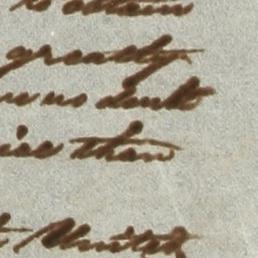 to obtain
greatly
no doubt
than
United